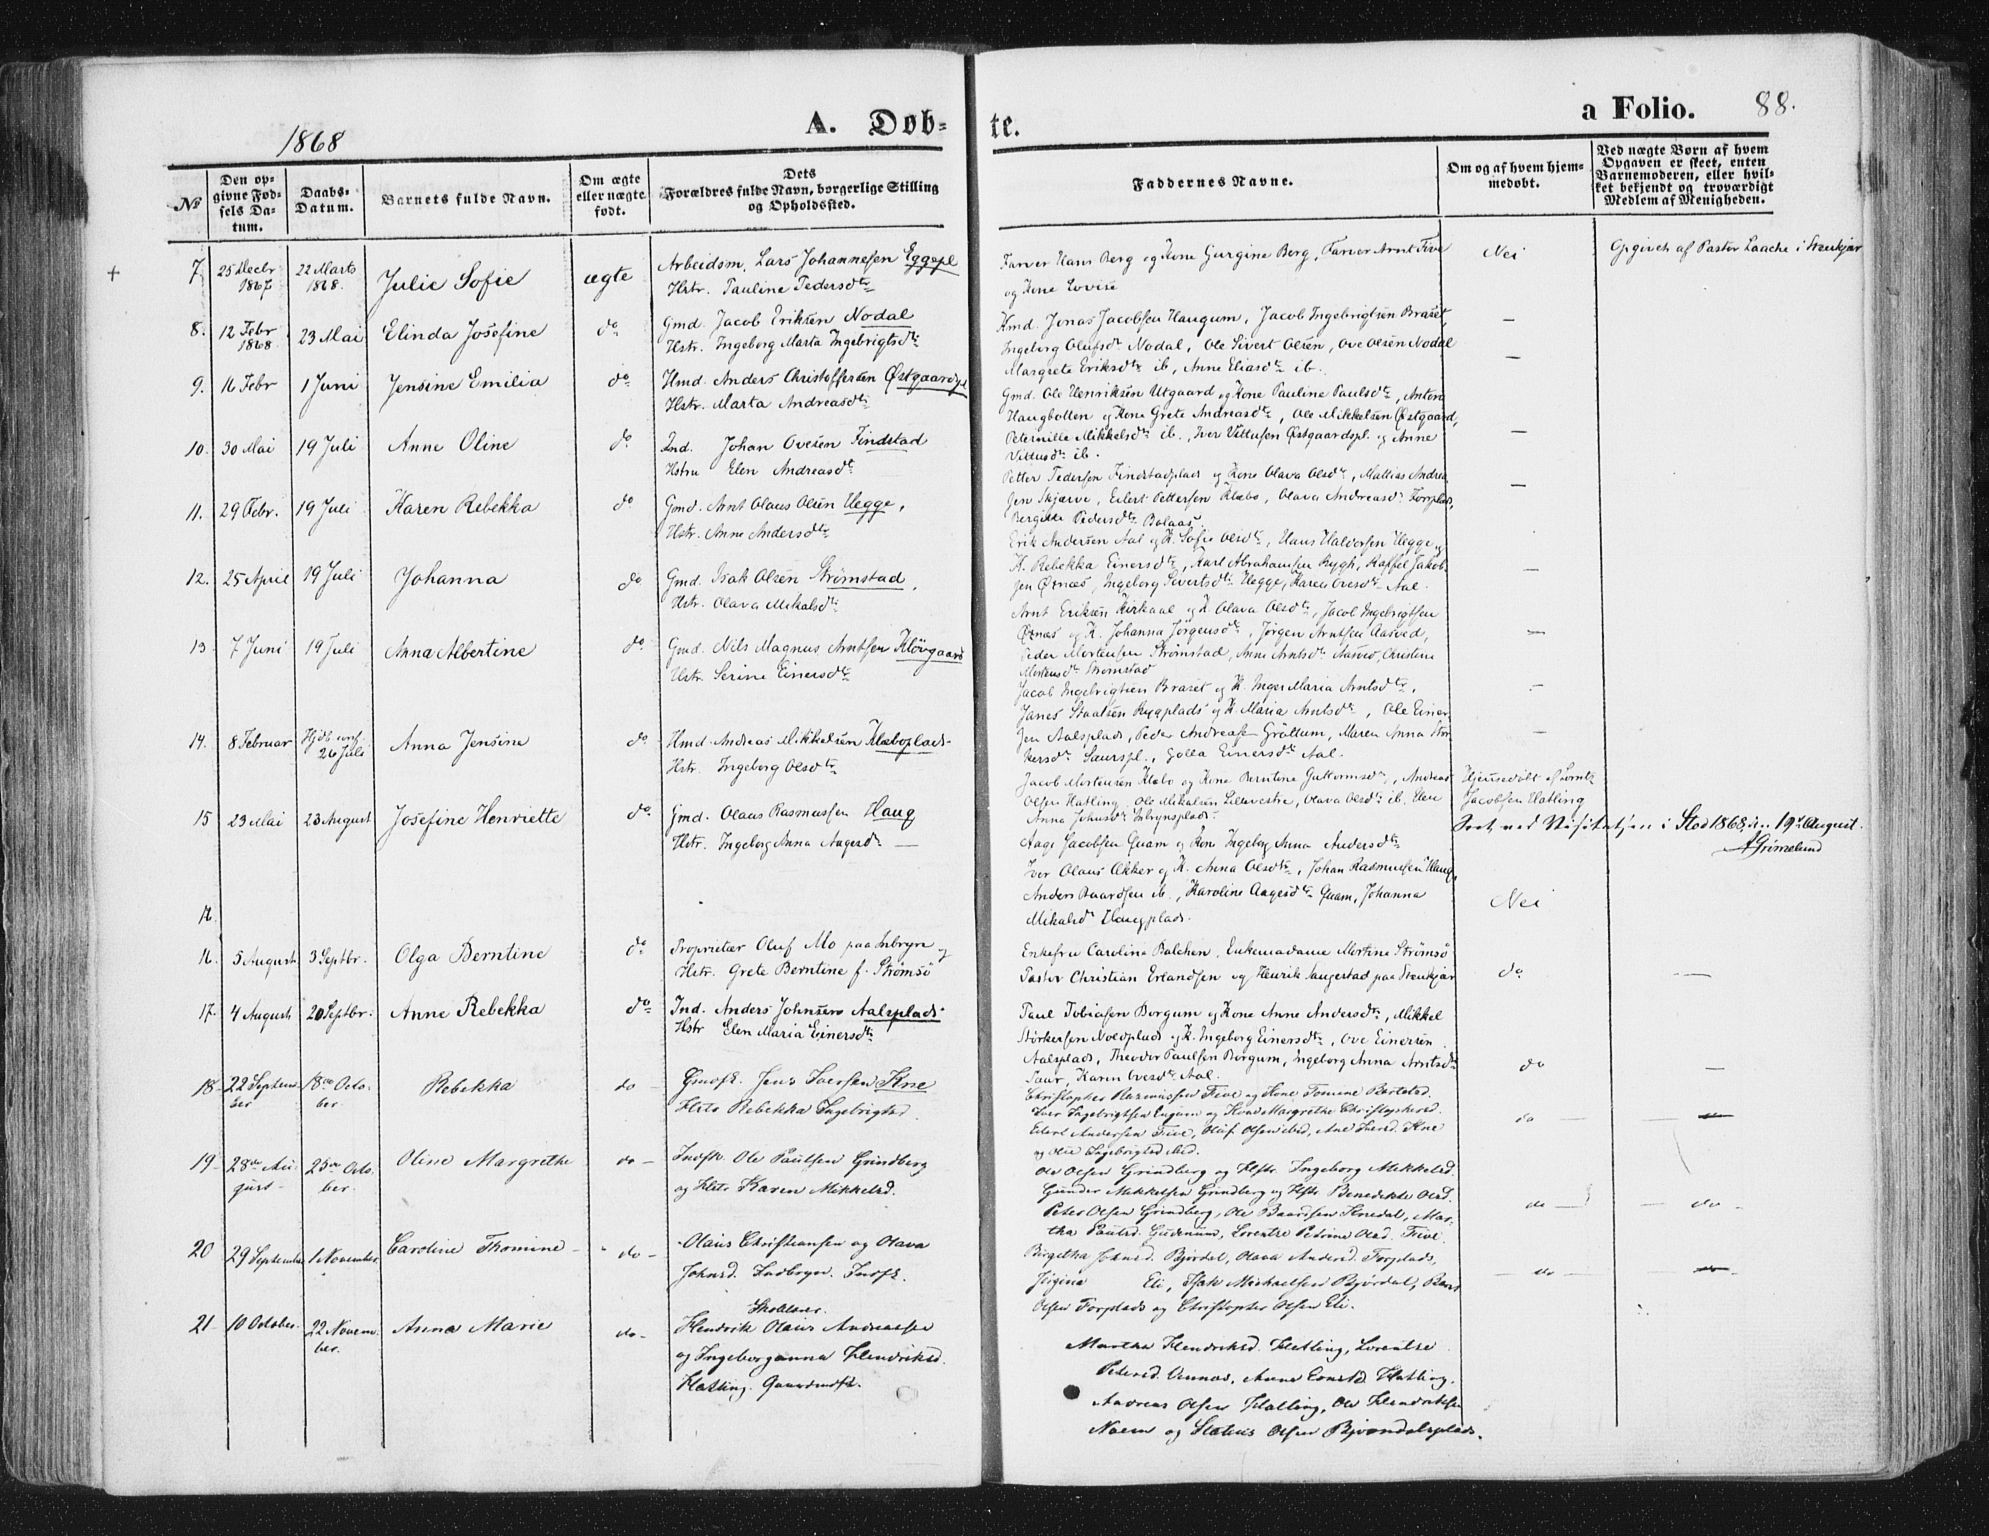 1868
A. Døb-
te.
a Folio. 88.
№
Den op-
givne Fød-
sels Da-
tum.
Daabs-
Datum.
Barnets fulde Navn.
Om ægte
eller uægte
født.
Dets
Forældres fulde Navn, borgerlige Stilling
og Opholdssted.
Faddernes Navne.
Om og af hvem hjem-
medøbt.
Ved uægte Børn af hvem
Opgaven er skeet, enten
Barnemoderen, eller hvil-
ket bekjendt og troværdigt
Medlem af Menigheden.
+ 7. 25 Decbr 1867 22 Marts 1868. Julie Sofie ægte
Arbeidsm. Lars Johannesen Eggepl
Hstr. Pauline Pedersdtr
Farver Hans Berg og Kone Gurgine Berg, Farver Arnt Five
og Kone Lovise
Nei
Opgivet af Pastor Laache i Steenkjær
8. 12 Febr 1868. 23 Mai Elinda Josefine do
Gmd. Jacob Eriksen Nodal
Hstr. Ingeborg Marta Ingebrigtsdtr
Kmd. Jonas Jacobsen Haugum, Jacob Ingebrigtsen Braset,
Ingeborg Olufsdtr Nodal, Ole Sivert Olsen, Ove Olsen Nodal
Margrete Eriksdtr ib, Anne Eliasdtr ib.
—
9. 16 Febr 1 Juni Jensine Emilia do
Hmd. Anders Christoffersen Østgaardspl
Hstr. Marta Andreasdtr
Gmd. Ole Henriksen Utgaard og Kone Pauline Paulsdtr, Anton
Haugbotten og Kone Grete Andreasdtr, Ole Mikkelsen Østgaard,
Peternille Mikkelsdtr ib., Iver Vittusen Østgaardspl. og Anne
Vittusdtr ib.
—
10. 30 Mai 19 Juli Anne Oline do
Ind. Johan Ovesen Findstad
Hstru Elen Andreasdtr
Petter Pedersen Findstadplads og Kone Olava Olsdtr, Mathias Andrea
sen Skjærve, Eilert Pettersen Klæbo, Olava Andreasdtr Forplads,
Bergitte Pedersdtr Bolaas.
—
11. 29 Febr. 19 Juli Karen Rebekka do
Gmd. Arnt Olaus Olsen Hegge,
Hstr. Anne Andersdtr
Erik Andersen Aal og K. Sofie Olsdtr, Hans Halvorsen Hegge og
K. Rebekka Einersdtr, Karl Abrahamsen Rygh, Raffel Jakob
sen Ørnæs, Ingeborg Sivertsdtr Hegge, Karen Ovesdtr Aal.
—
12. 25 April 19 Juli Johanna do
Gmd. Isak Olsen Strømstad,
Hstr. Olava Mikalsdtr
Arnt Eriksen Kirkaal og K. Olava Olsdtr, Jacob Ingebrigtsen
Ørnæs og K. Johanna Jørgensdtr, Jørgen Arntsen Aasved,
Peder Mortensen Strømstad, Anne Arntsdtr Aasved, Christine
Mortensdtr Strømstad
—
13. 7 Juni 19 Juli Anna Albertine do
Gmd. Nils Magnus Arntsen Kløvgaard
Hstr. Serine Einersdtr
Jacob Ingebrigtsen Braset og K. Inger Maria Arntsdtr,
Janes Staalsen Rygplads og K Maria Arntsdtr, Ole Einer
sen Aalsplads, Peder Andreasen Grøttum, Maren Anna Stør
kersdtr Saurspl., Golla Einersdtr Aal.
—
14. 8 Februar Hjdb conf. 26 Juli Anna Jensine do
Hmd. Andreas Mikkelsen Klæboplads
Hstr. Ingeborg Olsdtr
Jacob Mortensen Klæbo og Kone Berntine Guttormsdtr, Andreas
Olsen Hatling, Ole Mikalsen Lillevestre, Olava Olsdtr ib. Elen
Anna Johnsdtr Inbrynsplads.
Hjemmedøbt af Lornts
Jacobsen Hatling
15 23 Mai 23 August Josefine Henriette do
Gmd. Olaus Rasmussen Haug
Hstr. Ingeborg Anna Aagesdtr —
Seet ved Visitatsen i Stod 1868, den 19de August.
AGrimelund
Aage Jacobsen Quam og Kone Ingeborg Anna Andersdtr
Iver Olaus Økker og K. Anna Olsdtr, Johan Rasmussen Haug,
Anders Baardsen ib., Karoline Aagesdtr Quam, Johanna
Mikalsdtr Haugplads.
Nei
16.
16. 5 August 3 Septbr. Olga Berntine do
Proprietær Oluf Mo paa Inbryn og
Hstr. Grete Berntine f. Strømsø
Enkefru Carolina Balchen, Enkemadame Mortine Strømsø
Pastor Christian Erlandsen og Henrik Jangestad paa Steenkjær
do —
17. 4 August 20 Septbr. Anne Rebekka do
Ind. Anders Johnsen Aalsplads
Hstr Elen Maria Einersdtr
Paul Tobiasen Borgum og Kone Anne Andersdtr, Mikkel
Størkersen Noldplads og K. Ingeborg Einersdtr, Ove Einersen
Aalsplads, Theodor Paulsen Borgum, Ingeborg Anna Arntsdtr
Saur, Karen Ovesdtr Aal.
do —
18 22 Septem-
ber 18de Octo-
ber. Rebekka do
Gmdsk. Jens Larssen Kne
Hstr Rebekka Ingebrigtsd.
Christopher Rasmussen Five og Kone Tomine Bartstad.
Lars Ingebrigtsen Engum og Kone Margrethe Christophersd.
Edert Andersen Five, Oluf Olsen ibid, Ane Larsd. Kne
og Olie Ingebrigtsd ibid.
do —
19 28de Au-
gust 25de Octo-
ber. Oline Margrethe do
Indsk. Ole Paulsen Grindberg
og Hstr Karen Mikkelsd.
Ole Olsen Grindberg og Hstr. Ingeborg Mikkelsd.
Gunder Mikkelsen Grindberg og Hstr Benedikte Olsd.
Peter Olsen Grindberg, Ole Baardsen Knedal, Mar-
tha Paulsd. Gudenum, Lorentse Petrine Olsd. Five.
do — do
20 29 September 1 November. Caroline Thomine do
Olaus Christiansen og Olava
Johnsd. Indbryn. Indsk.
Birgitha Johnsd. Bjørdal, Olava Andersd. Forplads,
Jørgine Eli, Isak Michaelsen Bjørdal, Bernt
Olsen Forplads og Christopher Olsen Eli.
do — do
21 10 October. 22 Novem-
ber. Anna Marie do
Skolelærer.
Hendrik Olaus Andreassen
og Ingeborganna Hendriksd.
Hatling. Gaardmsk.
Martha Hendriksd. Hatling, Lorentse
Petersd. Vennes, Anne Hatling.
Andreas Olsen Hatling, Ole Hendriksen
Noem og Olsen Bjørndalsplads.